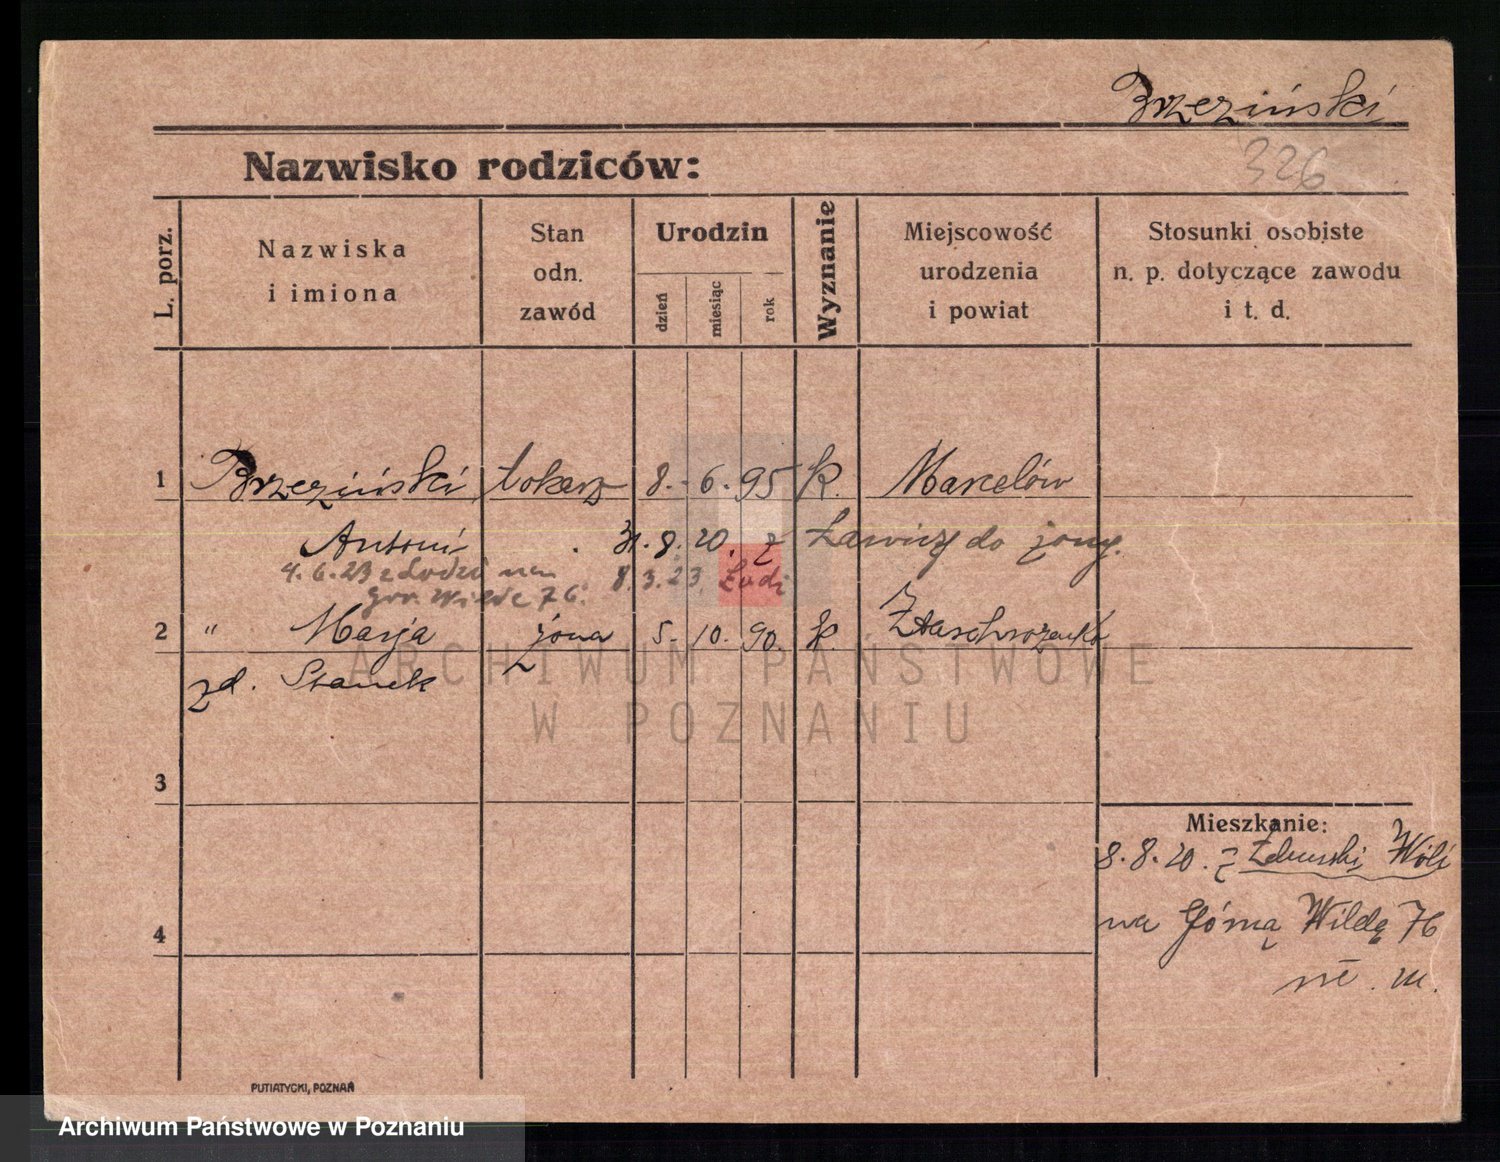 Brzeziński
326
Nazwisko rodziców:
L. porz.
Nazwiska
i imiona
Stan
odn.
zawód
Urodzin
dzień
miesiąc
rok
Wyznanie
Miejscowość
urodzenia
i powiat
Stosunki osobiste
n. p. dotyczące zawodu
i t. d.
1 Brzeziński tokarz 8. 6. 95 k. Marcelów
Antoni 31. 8. 20. z Ławicy do żony.
4. 6. 23 z Łodzi na 8. 3. 23. Łodzi
gór. Wilde 76.
2 " Marja żona 5. 10. 90. k.
zd. Stanek
ARCHIWUM PAŃSTWOWE
W POZNANIU
3
Mieszkanie:
8. 8. 20. z Woli
na Górną Wildę 76
4
m.
PUTIATYCKI, POZNAŃ
Archiwum Państwowe w Poznaniu